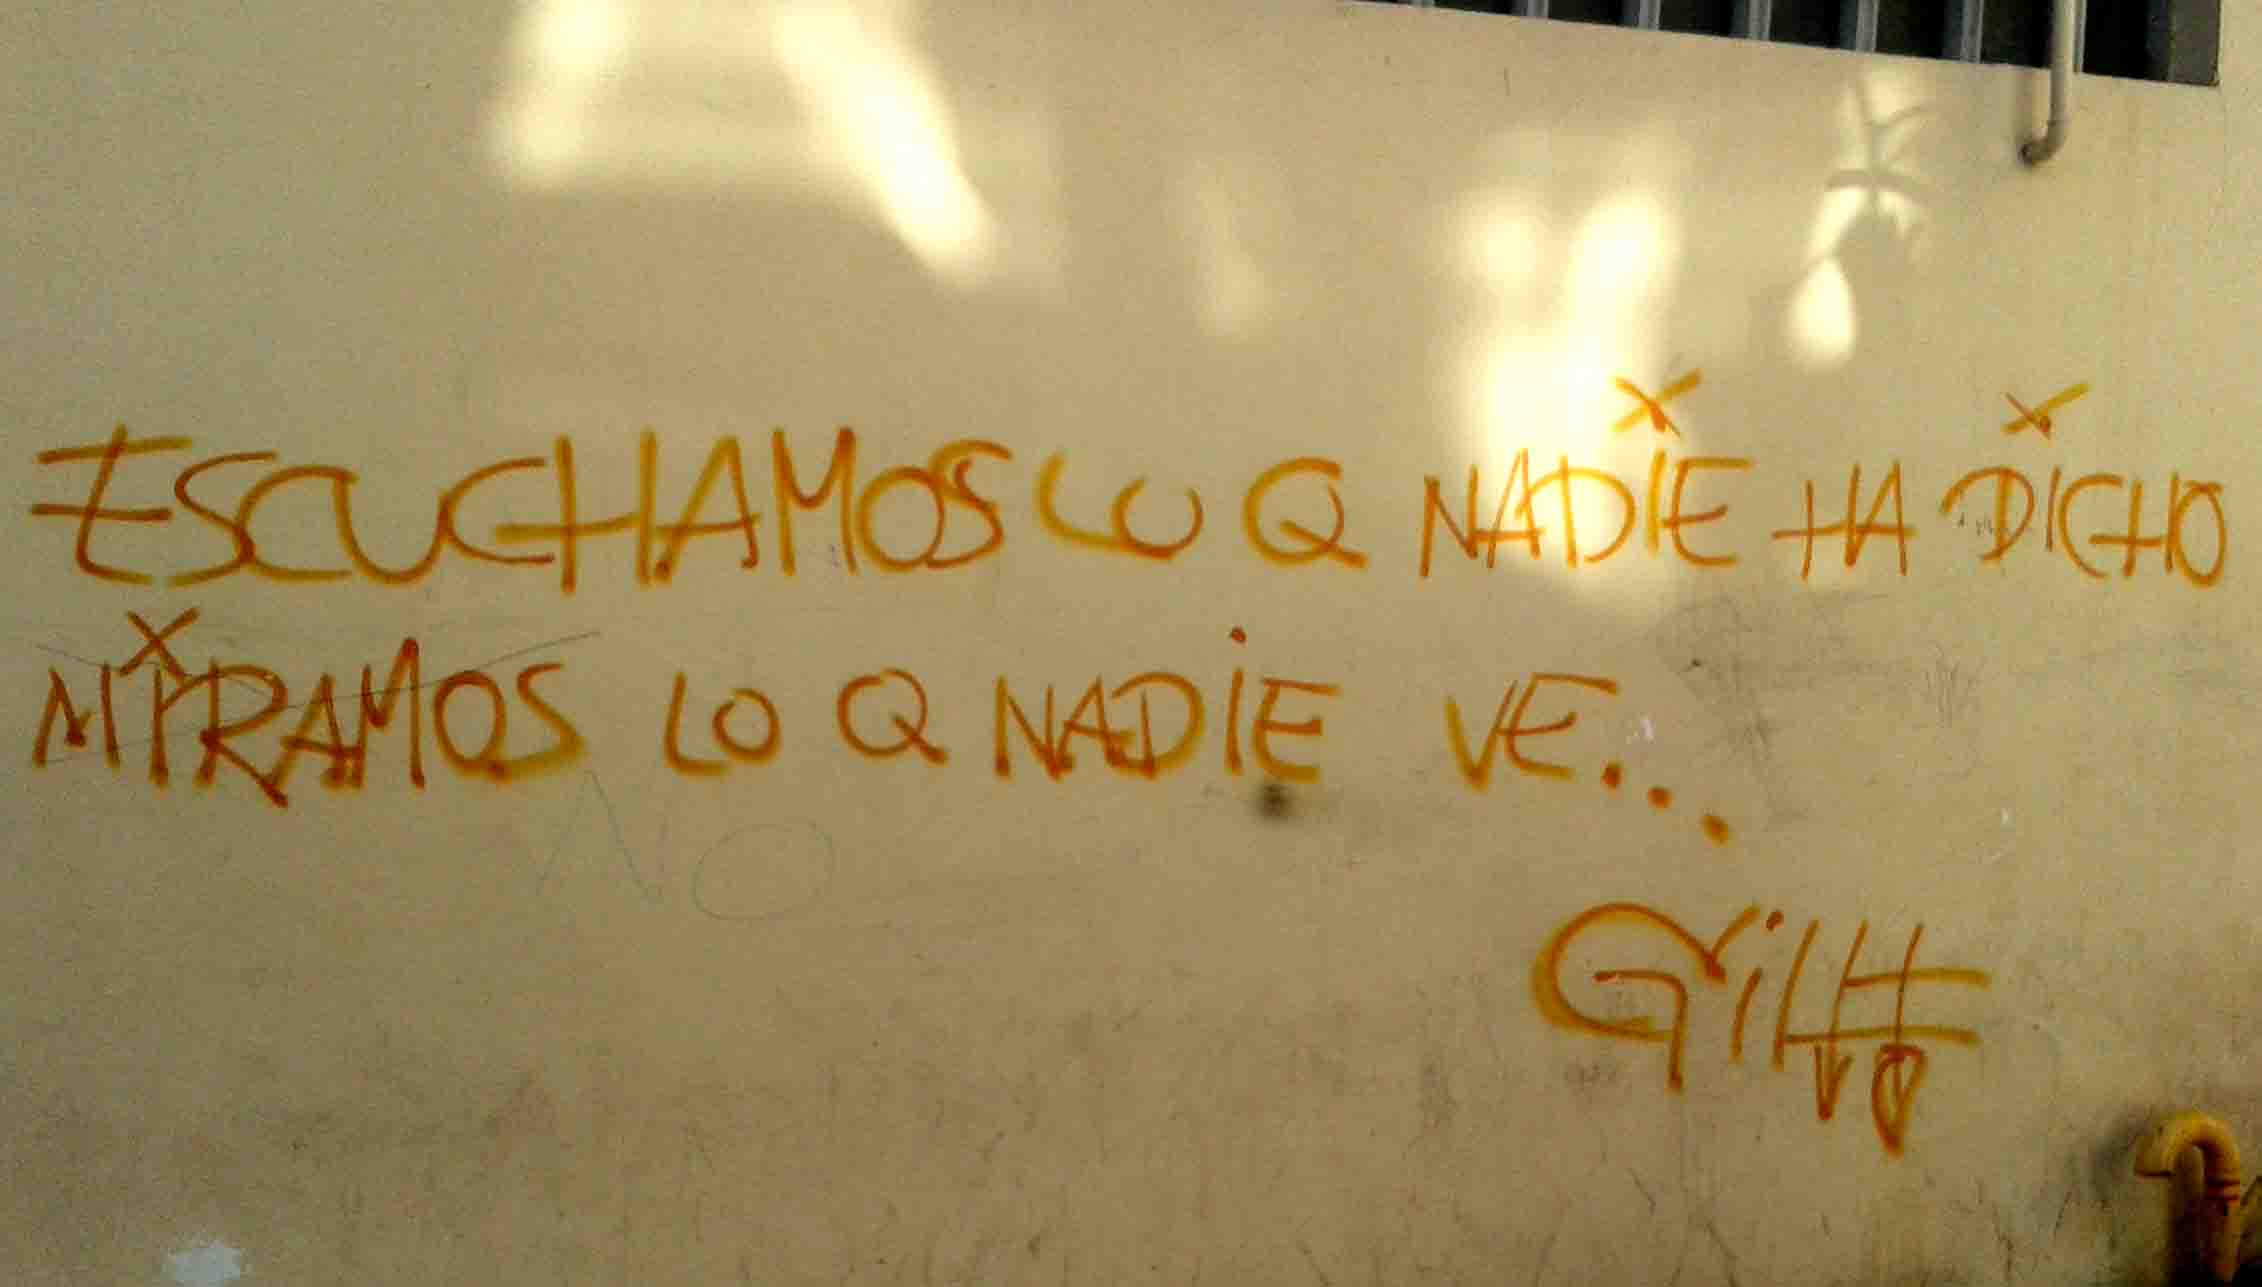 ESCUCHAMOS LO Q NADIE HA DICHO
MIRAMOS LO Q NADIE VE...
NO